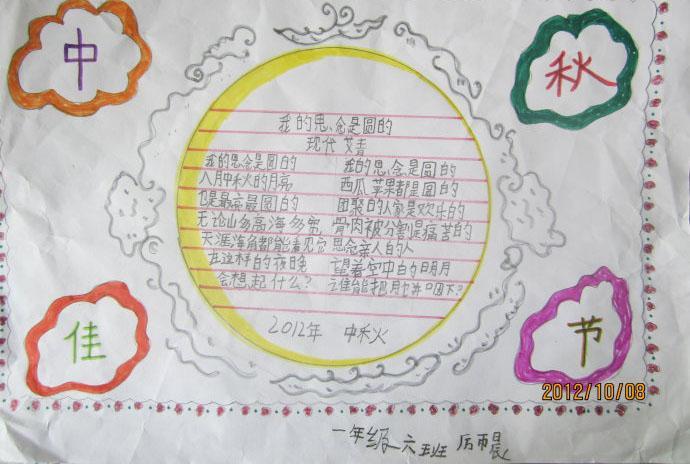 中
秋
我的思念是圆的
现代 艾青
我的思念是圆的
八月中秋的月亮
也是最亮最圆的
无论山多高海多宽
天涯海角都能看见它
在这样的夜晚
会想起什么？
我的思念是圆的
西瓜苹果都是圆的
团聚的人家是欢乐的
骨肉被分割是痛苦的
思念亲人的人
望着空中的明月
谁能把月饼咽下？
2012年 中秋
佳
节
2012/10/08
一年级六班